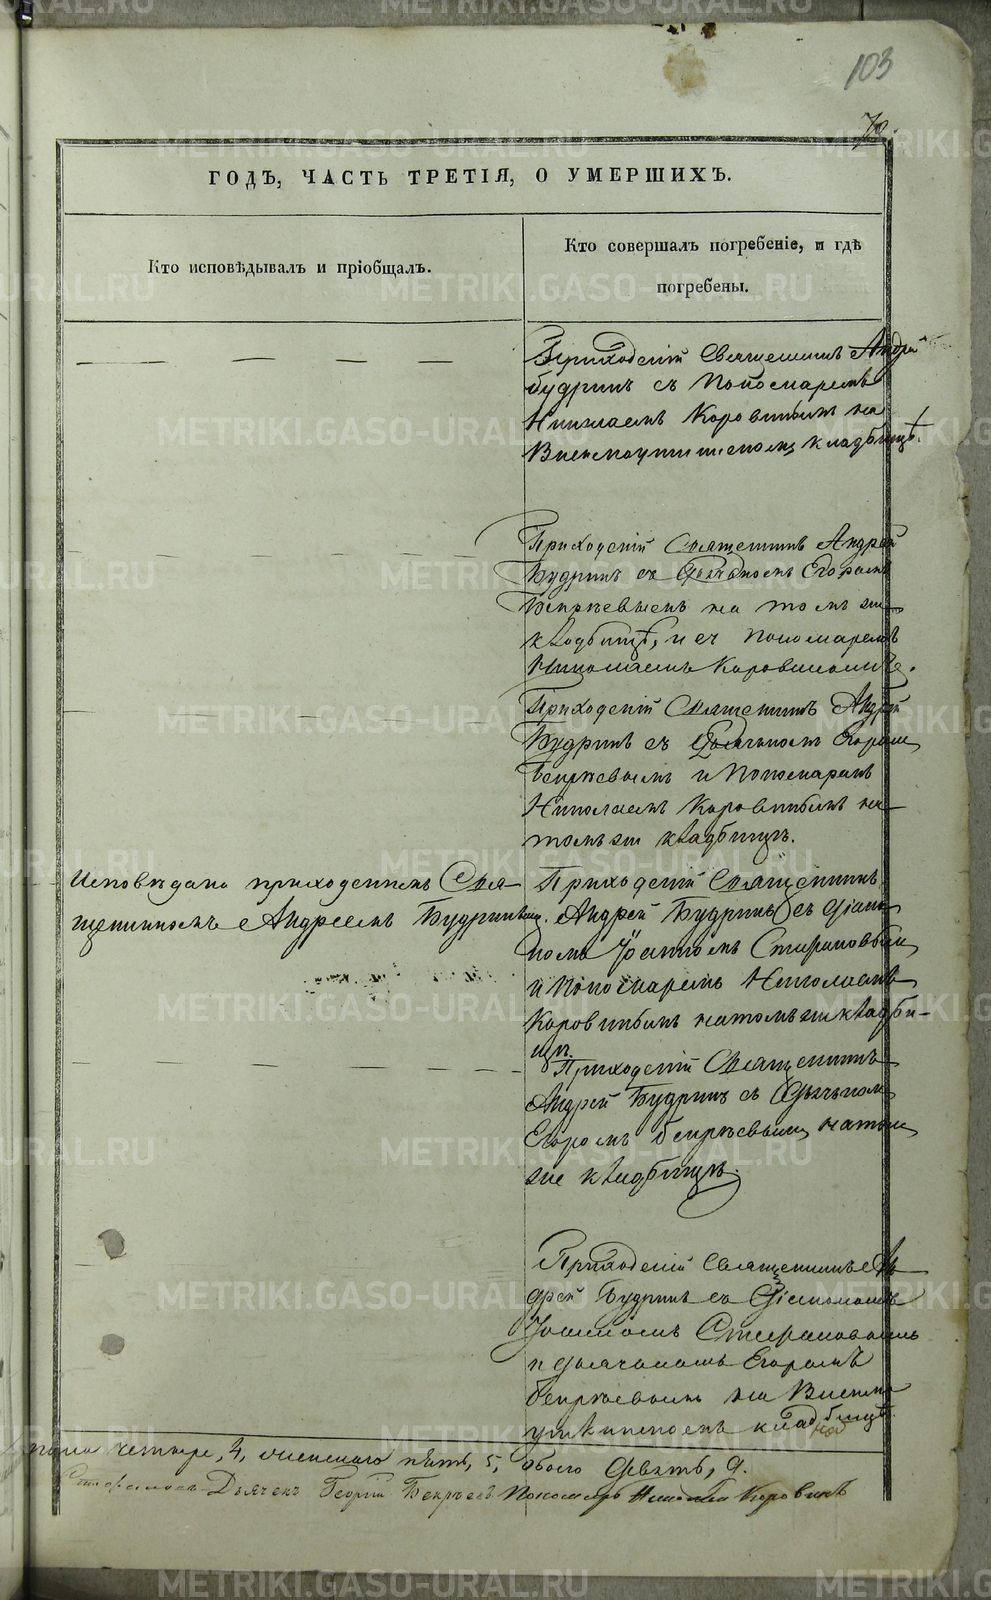 103
70.
ГОДЪ, ЧАСТЬ ТРЕТІЯ, О УМЕРШИХЪ.
Кто исповѣдывалъ и пріобщалъ.
Кто совершалъ погребеніе, и гдѣ
погребены.
Приходскій Священникъ Андрей
Будринъ съ Пономаремъ
Николаемъ Коровинымъ на
кладбищѣ.
Приходскій Священникъ Андрей
Будринъ съ Дьячкомъ Егоромъ
на томъ же
кладбищѣ, и съ Пономаремъ
Николаемъ
Приходскій Священникъ Андрей
Будринъ съ Дьячкомъ Егоромъ
и Пономаремъ
Николаемъ Коровинымъ на
томъ же кладбищѣ.
Исповѣдана приходскимъ Свя-
щенникомъ Андреемъ Будринымъ.
Приходскій Священникъ
Андрей Будринъ съ Діако-
номъ Іоанномъ
и Пономаремъ Николаемъ
Коровинымъ на томъ же кладби-
щѣ.
Приходскій Священникъ
Андрей Будринъ съ Дьячкомъ
Егоромъ на томъ
же кладбищѣ.
Приходскій Священникъ Ан-
дрей Будринъ съ Діакономъ
Іоанномъ
и дьячкомъ Егоромъ
на
кладбищѣ
четыре, 4, женскаго пять, 5, обоего девять, 9.
Дьячекъ Георгій Пономарь Николай Коровинъ
METRIKI.GASO-URAL.RU